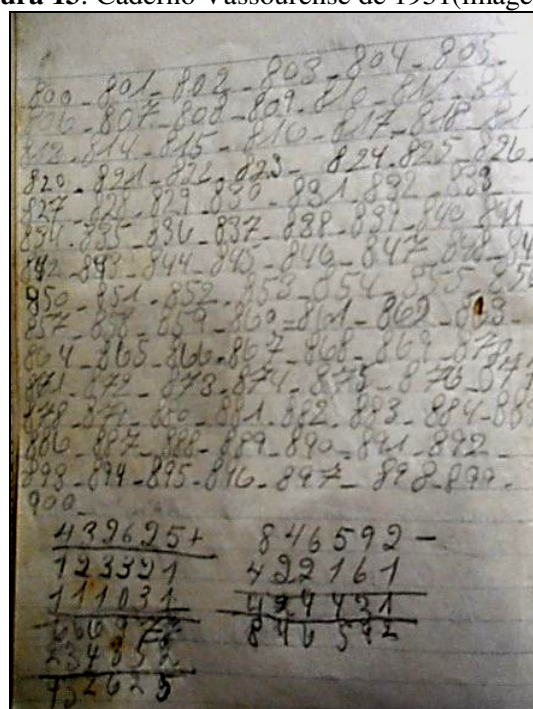 Caderno Vassourense de 1931(image
800 - 801 - 802 - 803 - 804 - 805 -
806 - 807 - 808 - 809 - 810 - 811 - 81
813 - 814 - 815 - 816 - 817 - 818 - 81
820 - 821 - 822 - 823 - 824 - 825 - 826 -
827 - 828 - 829 - 830 - 831 - 832 - 833
834 - 835 - 836 - 837 - 838 - 839 - 840 - 841
842 - 843 - 844 - 845 - 846 - 847 - 848 - 84
850 - 851 - 852 - 853 - 854 - 855 - 856
857 - 858 - 859 - 860 = 861 - 862 - 863 -
864 - 865 - 866 - 867 - 868 - 869 - 870
871 - 872 - 873 - 874 - 875 - 876 - 877
878 - 879 - 880 - 881 - 882 - 883 - 884 - 885
886 - 887 - 888 - 889 - 890 - 891 - 892 -
893 - 894 - 895 - 896 - 897 - 898 - 899 -
900 -
432625+ 846592 -
123321 422161
111031 424431
846592